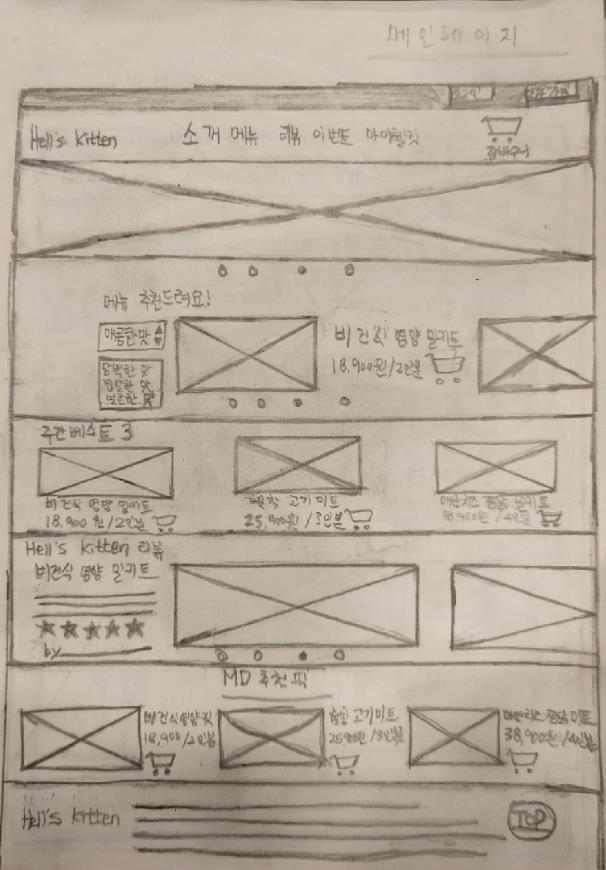 메인페이지
로그인
Hell's kitten 소개 메뉴 리뷰 이벤트 마이밀킷
장바구니
메뉴 추천드려요!
매콤한맛
담백한 맛
얼큰한 맛
비건식 영양 밀키트
18,900원/2인분
주간베스트 3
비건식 영양 밀키트
18,900원/2인분
고기 미트
25,900원/3인분
38,900원/4인분
Hell's kitten 리뷰
비건식 영양 밀키트
by
MD 추천 픽
비건식영양킷
18,900/2인분
고기미트
25,900원/3인분
38,900원/4인분
Hell's kitten
TOP